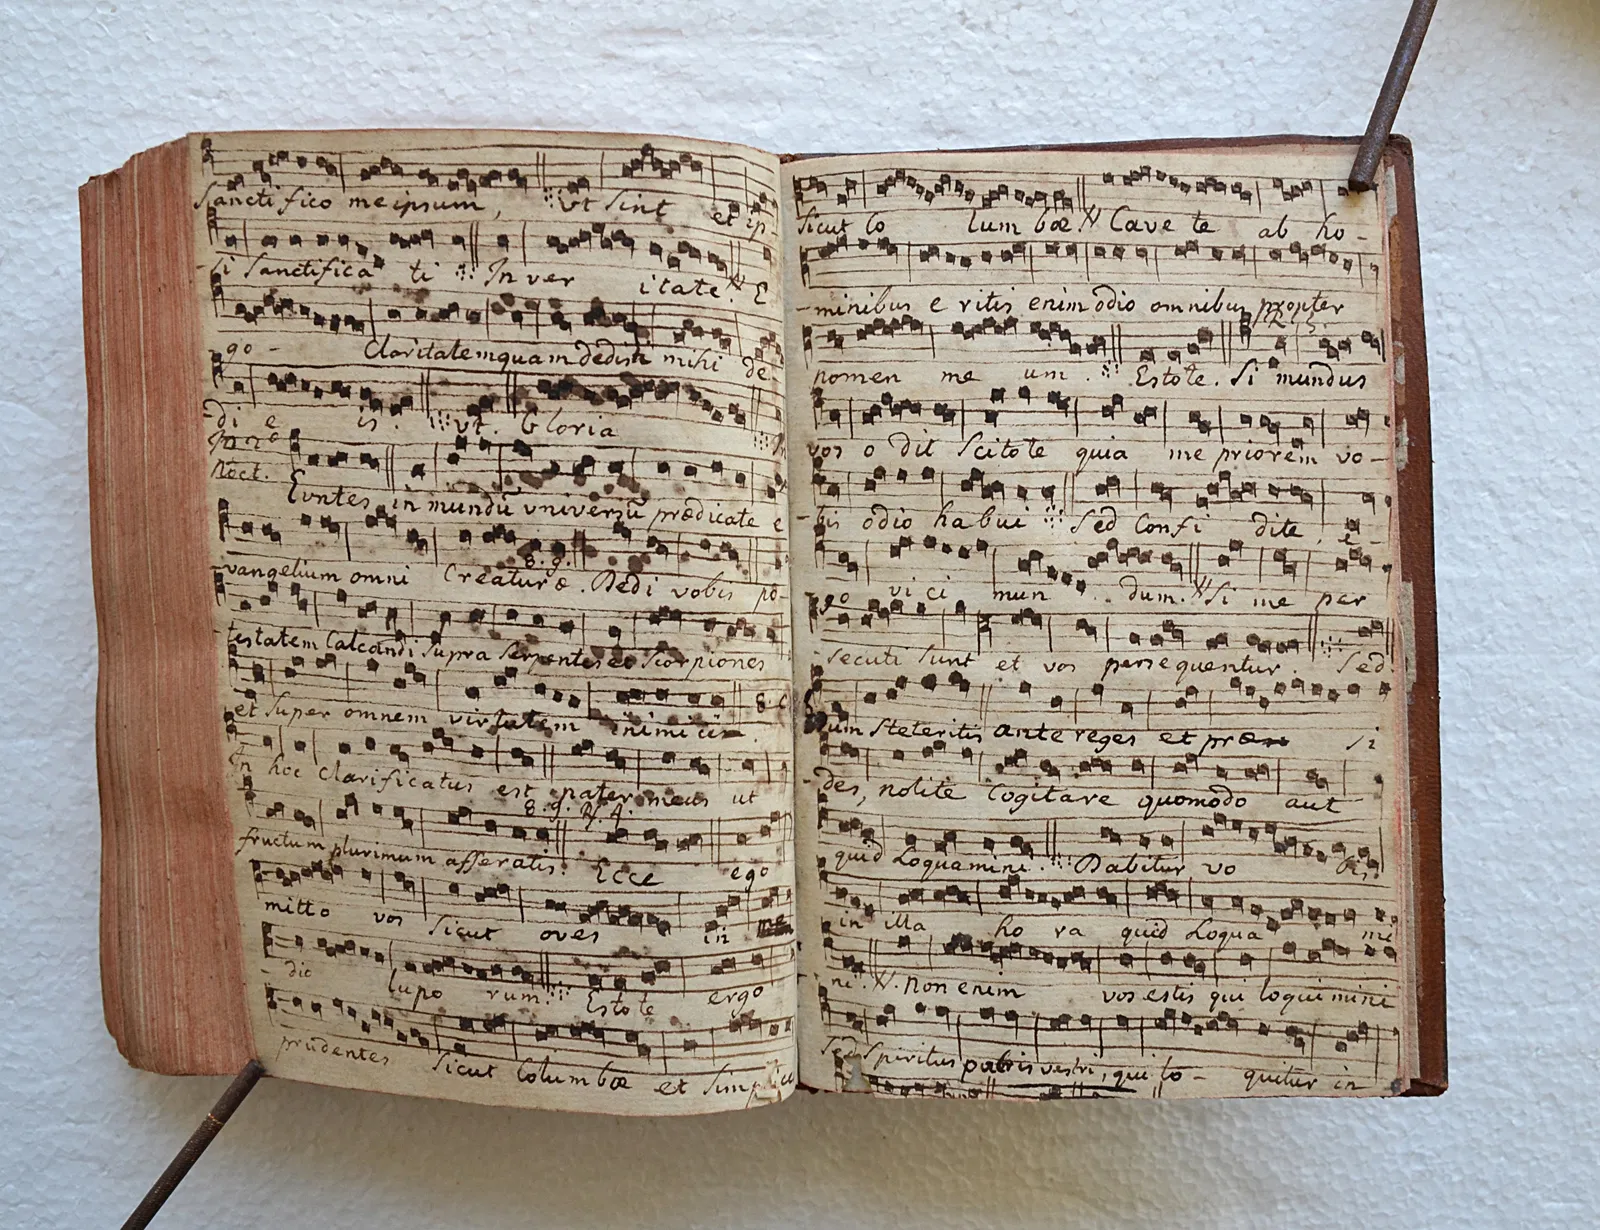 Sanctifico meipsum, ut Sint et ip-
-si Sanctifica ti In ver itate. V E
go - Claritatem quam dedisti mihi de
di e is. ut. Gloria
In 2o Noct. Euntes in mundū vniversū prædicate e
vangelium omni Creaturæ. 8. g. Dedi vobis po-
testatem Calcandi Supra Serpentes et Scorpiones
et Super omnem virtutem inimici. 8 G
In hoc clarificatus est pater meus ut
fructum plurimum afferatis. 8. g. R. 4. Ecce ego
mitto vos Sicut oves in me
dio lupo rum. Estote ergo
prudentes Sicut Columbæ et Simp
Sicut Co lum bæ V Cave te ab ho-
-minibus e ritis enim odio omnibus propter
nomen me um. Estote. R. 5. Si mundus
vos o dit Scitote quia me priorem vo-
-bis odio habui Sed Confi dite, e-
go vi ci mun dum. V Si me per
secuti Sunt et vos persequentur. Sed.
Dum Steteritis ante reges et præ si
-des, nolite Cogitare quomodo aut
quid Loquamini. Dabitur vo bis
in illa ho ra quid Loqua mi
ni. V. Non enim vos estis qui loquimini
Sed Spiritus patris vestri, qui lo- quitur in